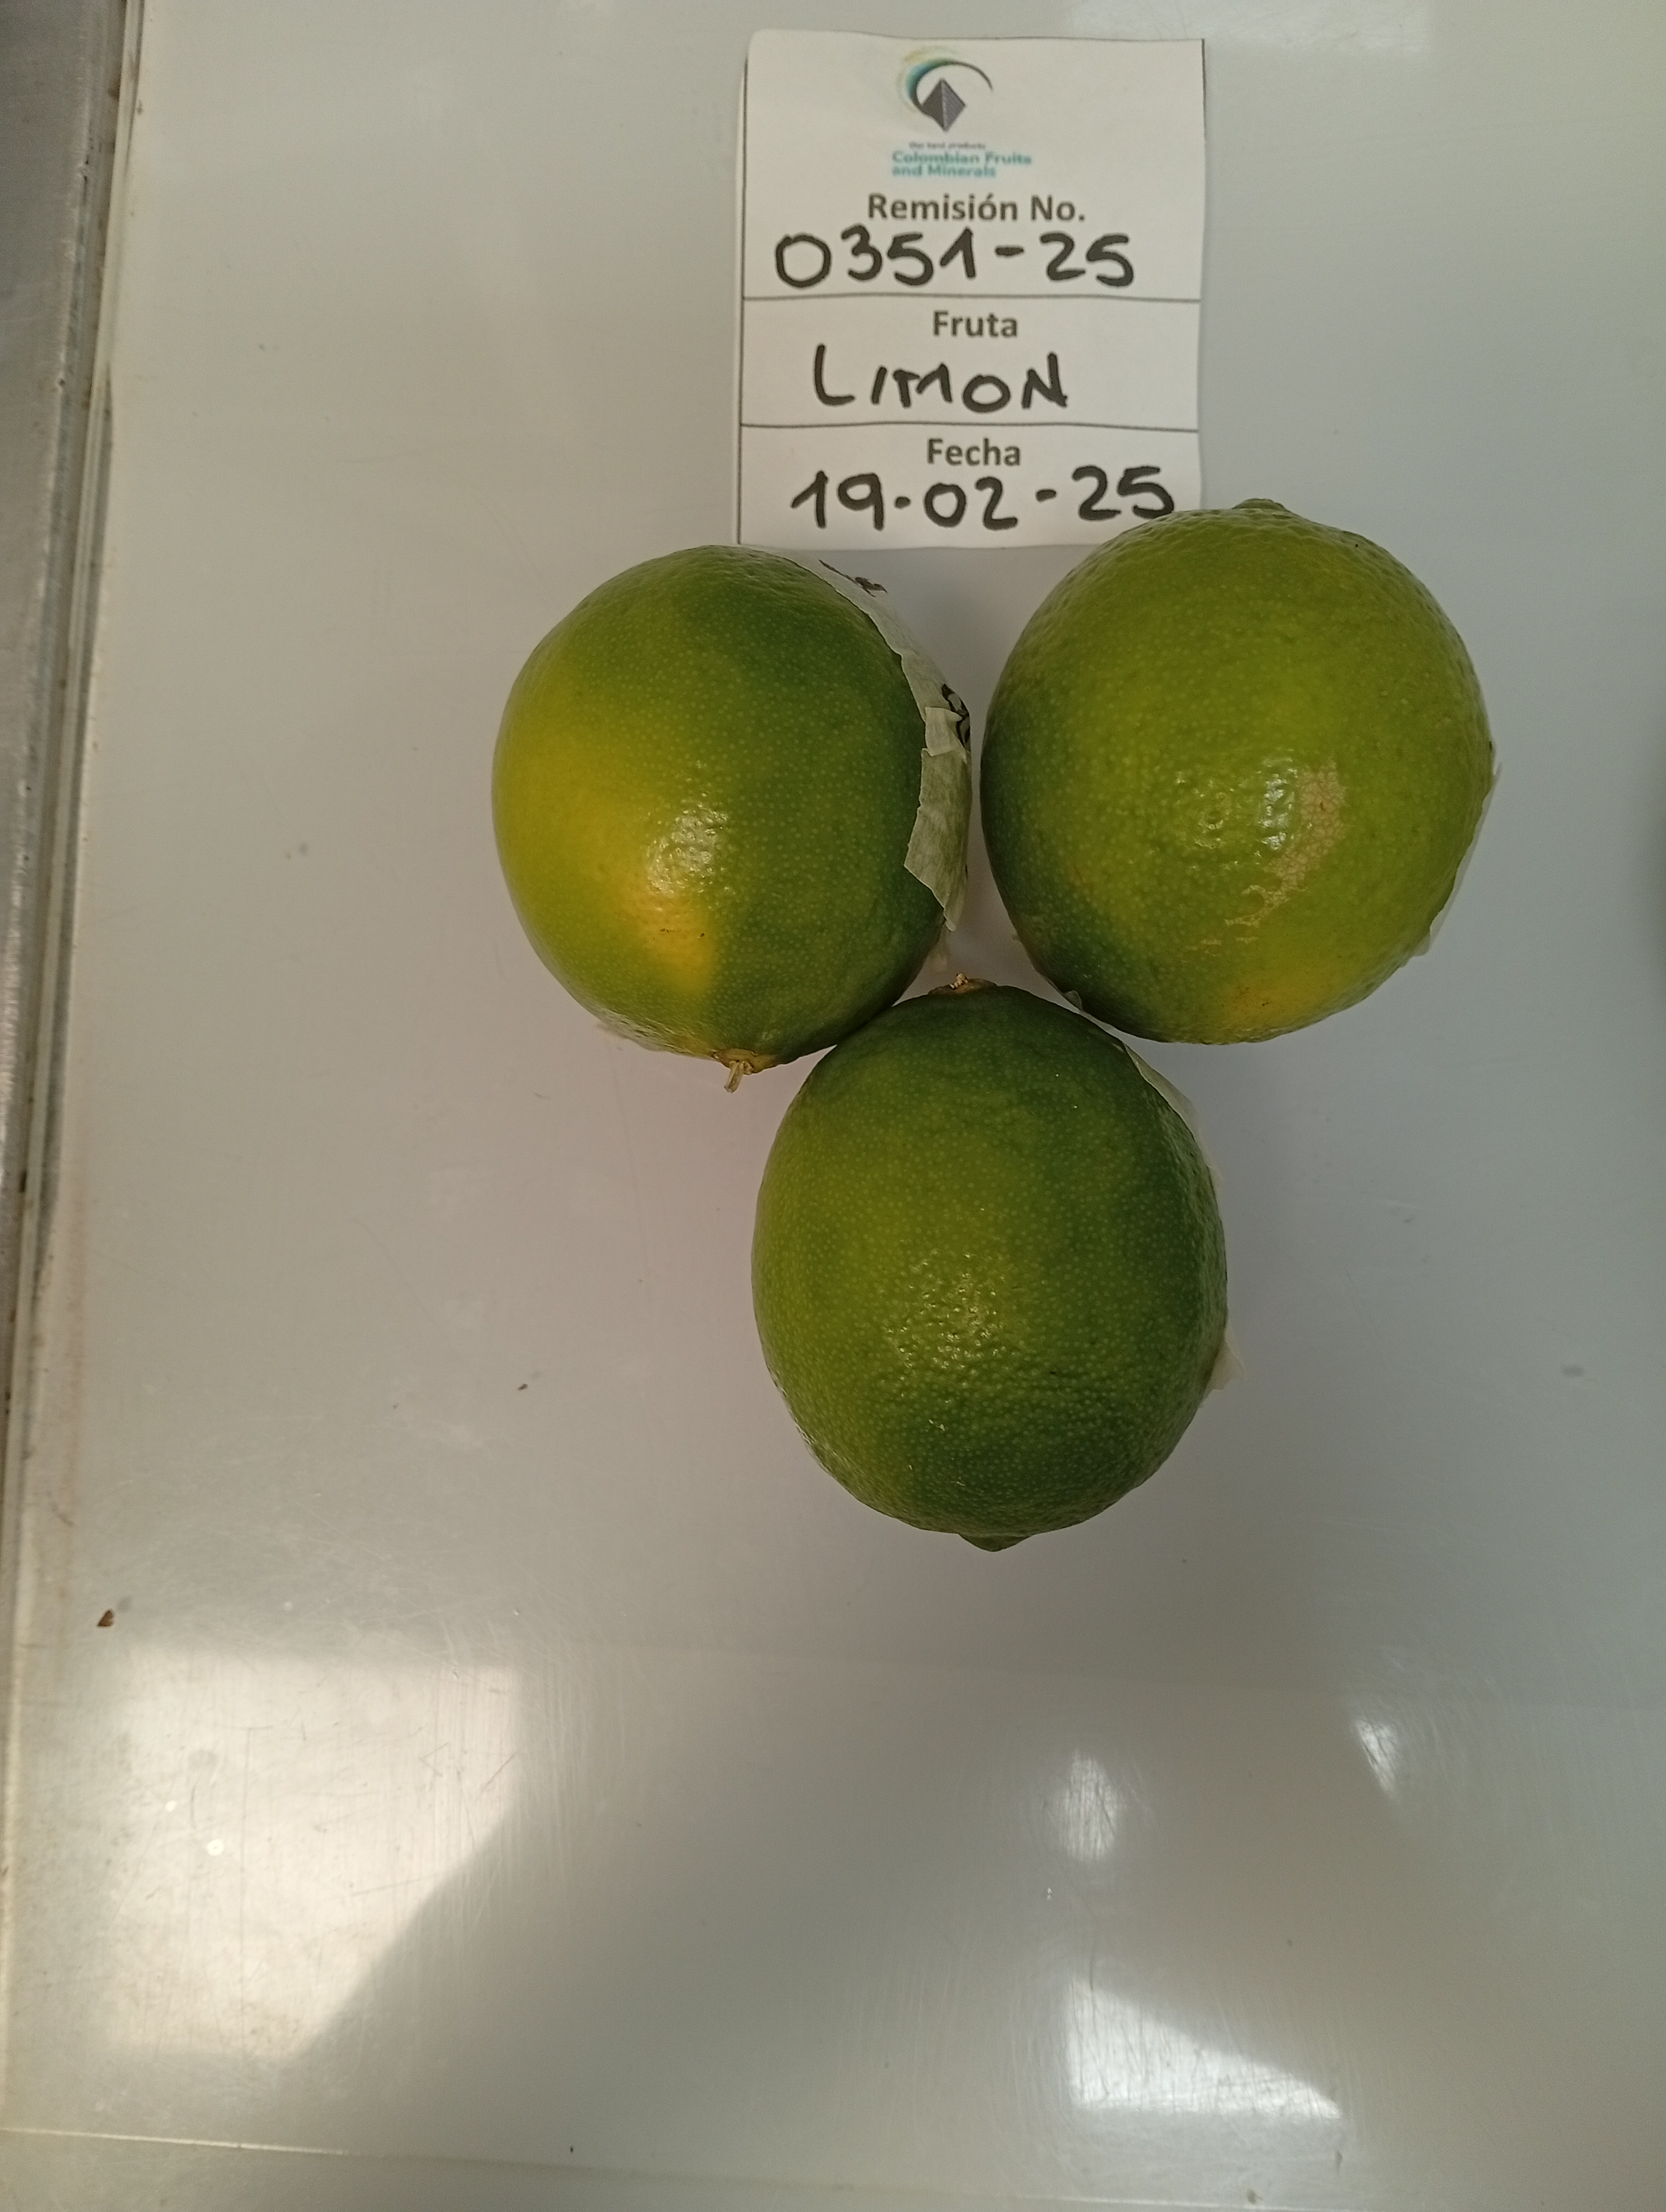 Colombian Fruits
and Minerals
Remisión No.
0351-25
Fruta
LIMON
Fecha
19-02-25